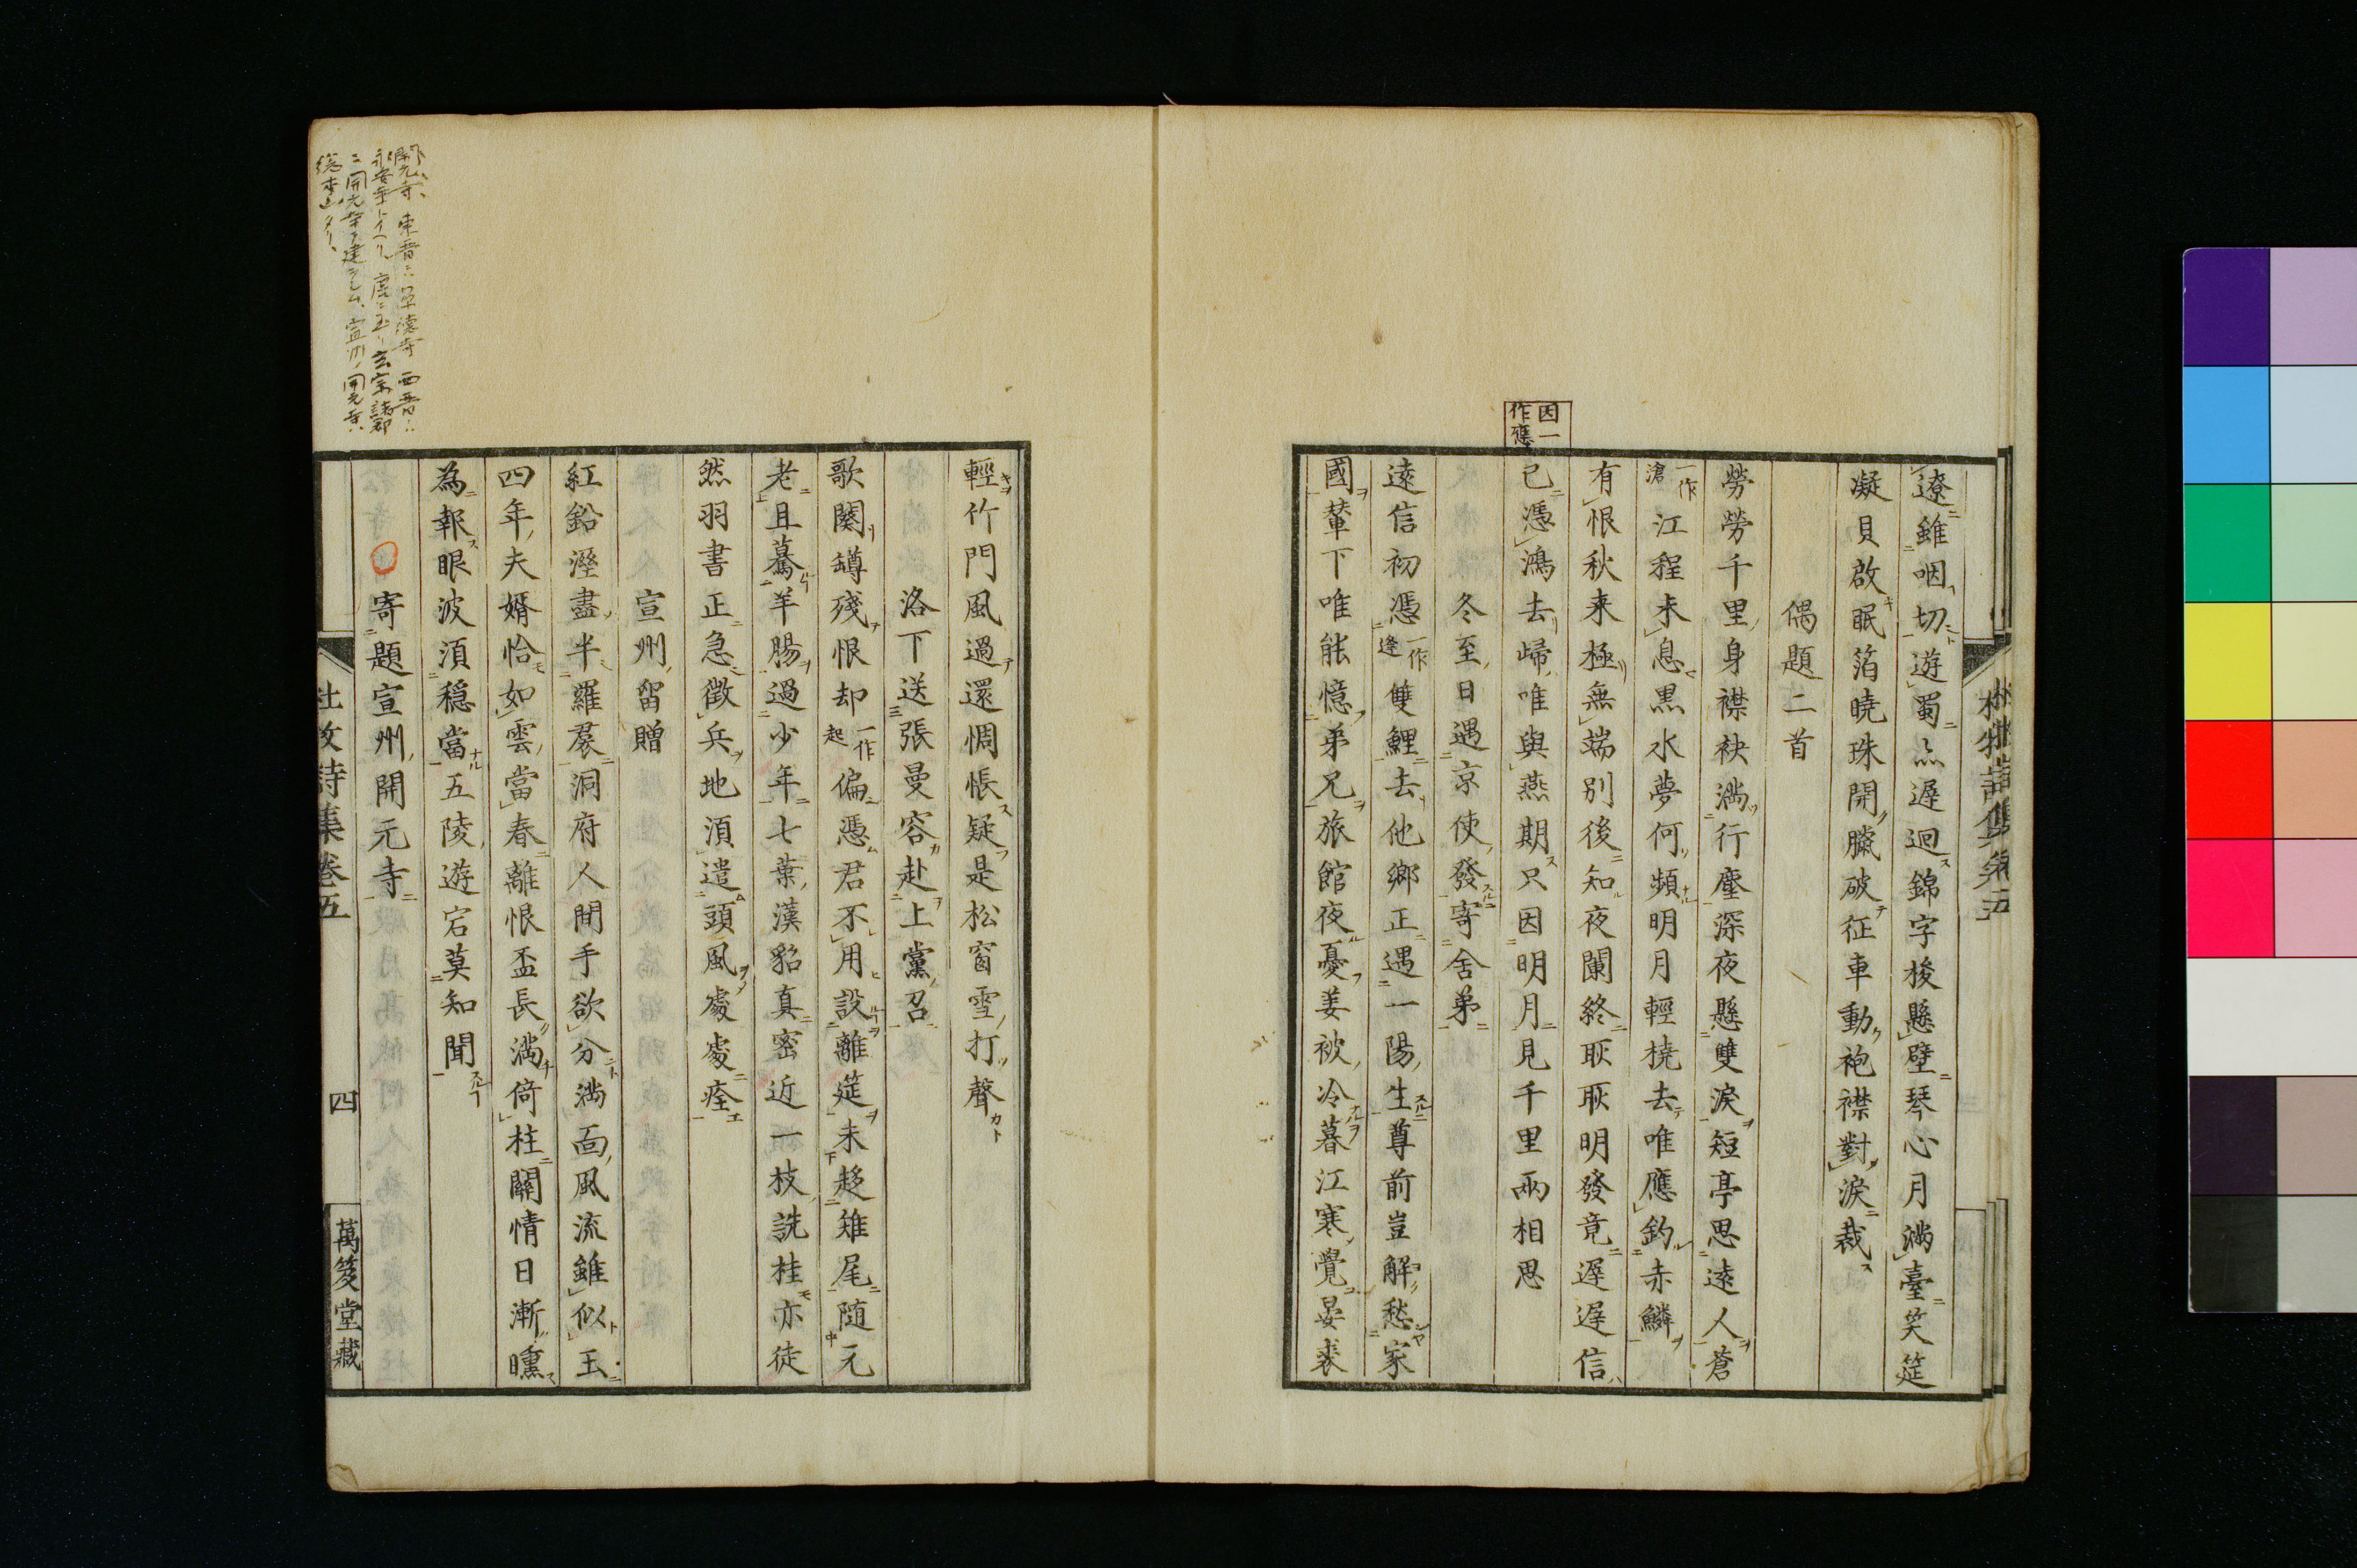 遼雖咽切遊蜀亦遲迴錦字梭懸壁琴心月滿臺笑筵
凝貝啟眠箔曉珠開臘破征車動袍襟對淚裁
偶題二首
勞勞千里身襟袂滿行塵深夜懸雙淚短亭思遠人蒼
一作滄江程未息黒水夢何頻明月輕橈去唯應釣赤鱗
有恨秋来極無端別後知夜闌終耿耿明發竟遲遲信
因一作應
已憑鴻去歸唯與燕期只因明月見千里兩相思
冬至日遇京使發寄舍弟
遠信初憑一作逢雙鯉去他鄉正遇一陽生尊前豈解愁家
國輦下唯能憶弟兄旅館夜憂姜被冷暮江寒覺晏裘
輕竹門風過還惆悵疑是松窗雪打聲
洛下送張曼容赴上黨召
歌闋罇殘恨却一作起偏憑君不用設離筵未趍雉尾随元
老且驀羊腸過少年七葉漢貂真密近一枝詵桂亦徒
然羽書正急徴兵地湏遣頭風處處痊
宣州留贈
紅鉛溼盡半羅裠洞府人間手欲分滿面風流雖似玉
四年夫婿恰如雲當春離恨盃長滿倚柱關情日漸曛
為報眼波湏穏當五陵遊宕莫知聞
寄題宣州開元寺
杜牧詩集卷五
四
萬笈堂藏